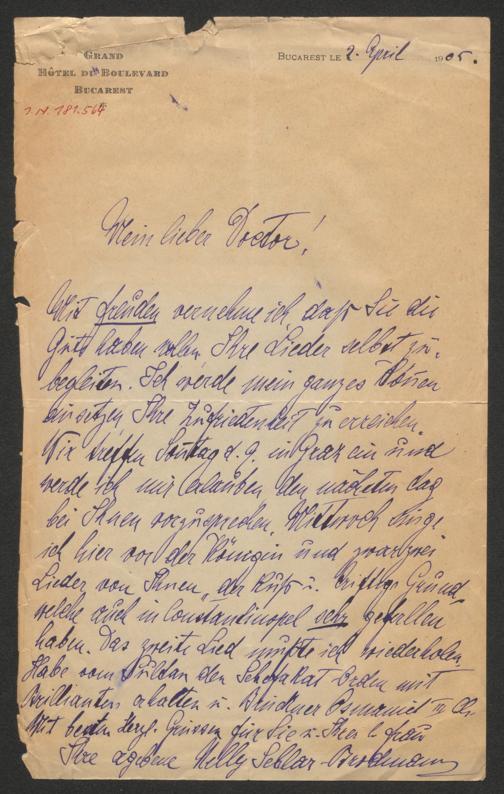 GRAND
HÔTEL DU BOULEVARD
BUCAREST
BUCAREST LE 2. April 1905.
I.N. 181.564
Mein lieber Doctor!
Mit freuden vernehme ich, daß Sie die
Güte haben wollen, Ihre Lieder selbst zu
begleiten. Ich werde mein ganzes Können
einsetzen Ihre Zufriedenheit zu erreichen.
Wir treffen Sontag d. 9. in Graz ein und
werde ich mir erlauben den nächsten Tag
bei Ihnen vorzusprechen. Mittwoch singe
ich hier vor der Königin und zwar zwei
Lieder von Ihnen, „der Kuß u. Grund"
welche auch in Constantinopel sehr gefallen
haben. Das zweite Lied mußte ich wiederholen.
Habe vom Sultan den Schefakat Orden mit
Brillianten erhalten u. Osmanié
Mit besten Herzl. Grüssen für Sie u. Ihre l. frau
Ihre ergebene Nelly -Brodmann